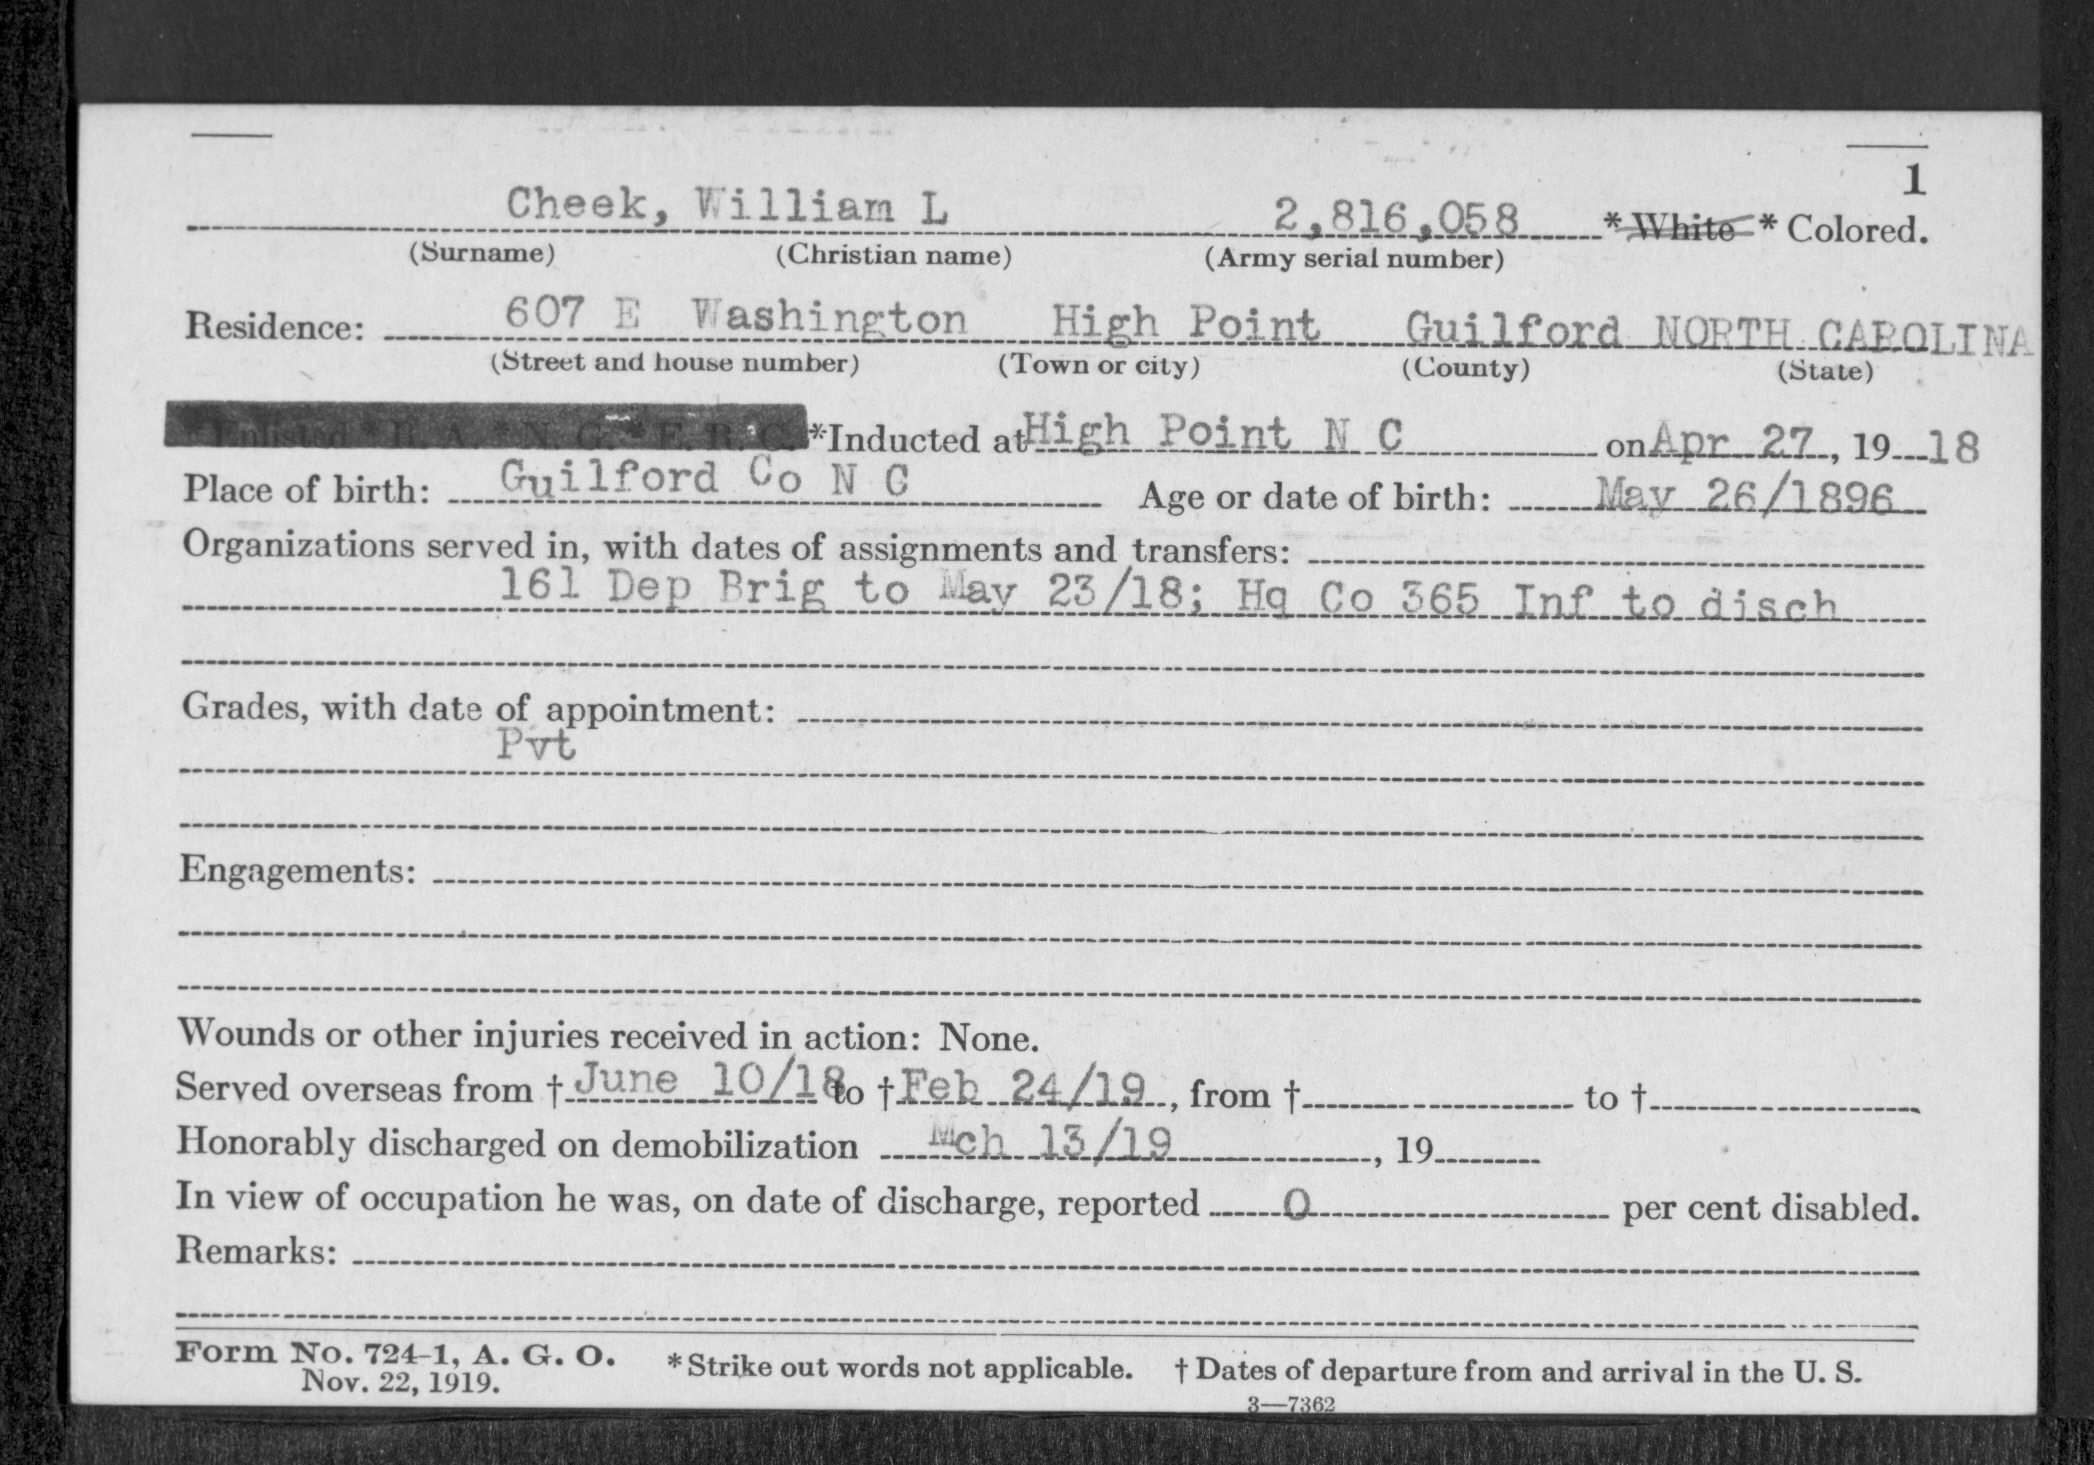 1
Cheek, William L 2,816,058 *White *Colored.
(Surname) (Christian name) (Army serial number)
Residence: 607 E Washington High Point Guilford NORTH CAROLINA
(Street and house number) (Town or city) (County) (State)
*Enlisted *R. A. *N. G. *E. R. C. *Inducted at High Point N C on Apr 27, 1918
Place of birth: Guilford Co N C Age or date of birth: May 26/1896
Organizations served in, with dates of assignments and transfers:
161 Dep Brig to May 23/18; Hq Co 365 Inf to disch
Grades, with date of appointment:
Pvt
Engagements:
Wounds or other injuries received in action: None.
Served overseas from † June 10/18 to † Feb 24/19, from † to †
Honorably discharged on demobilization Mch 13/19, 19
In view of occupation he was, on date of discharge, reported 0 per cent disabled.
Remarks:
Form No. 724-1, A. G. O. *Strike out words not applicable. † Dates of departure from and arrival in the U. S.
Nov. 22, 1919.
3—7362